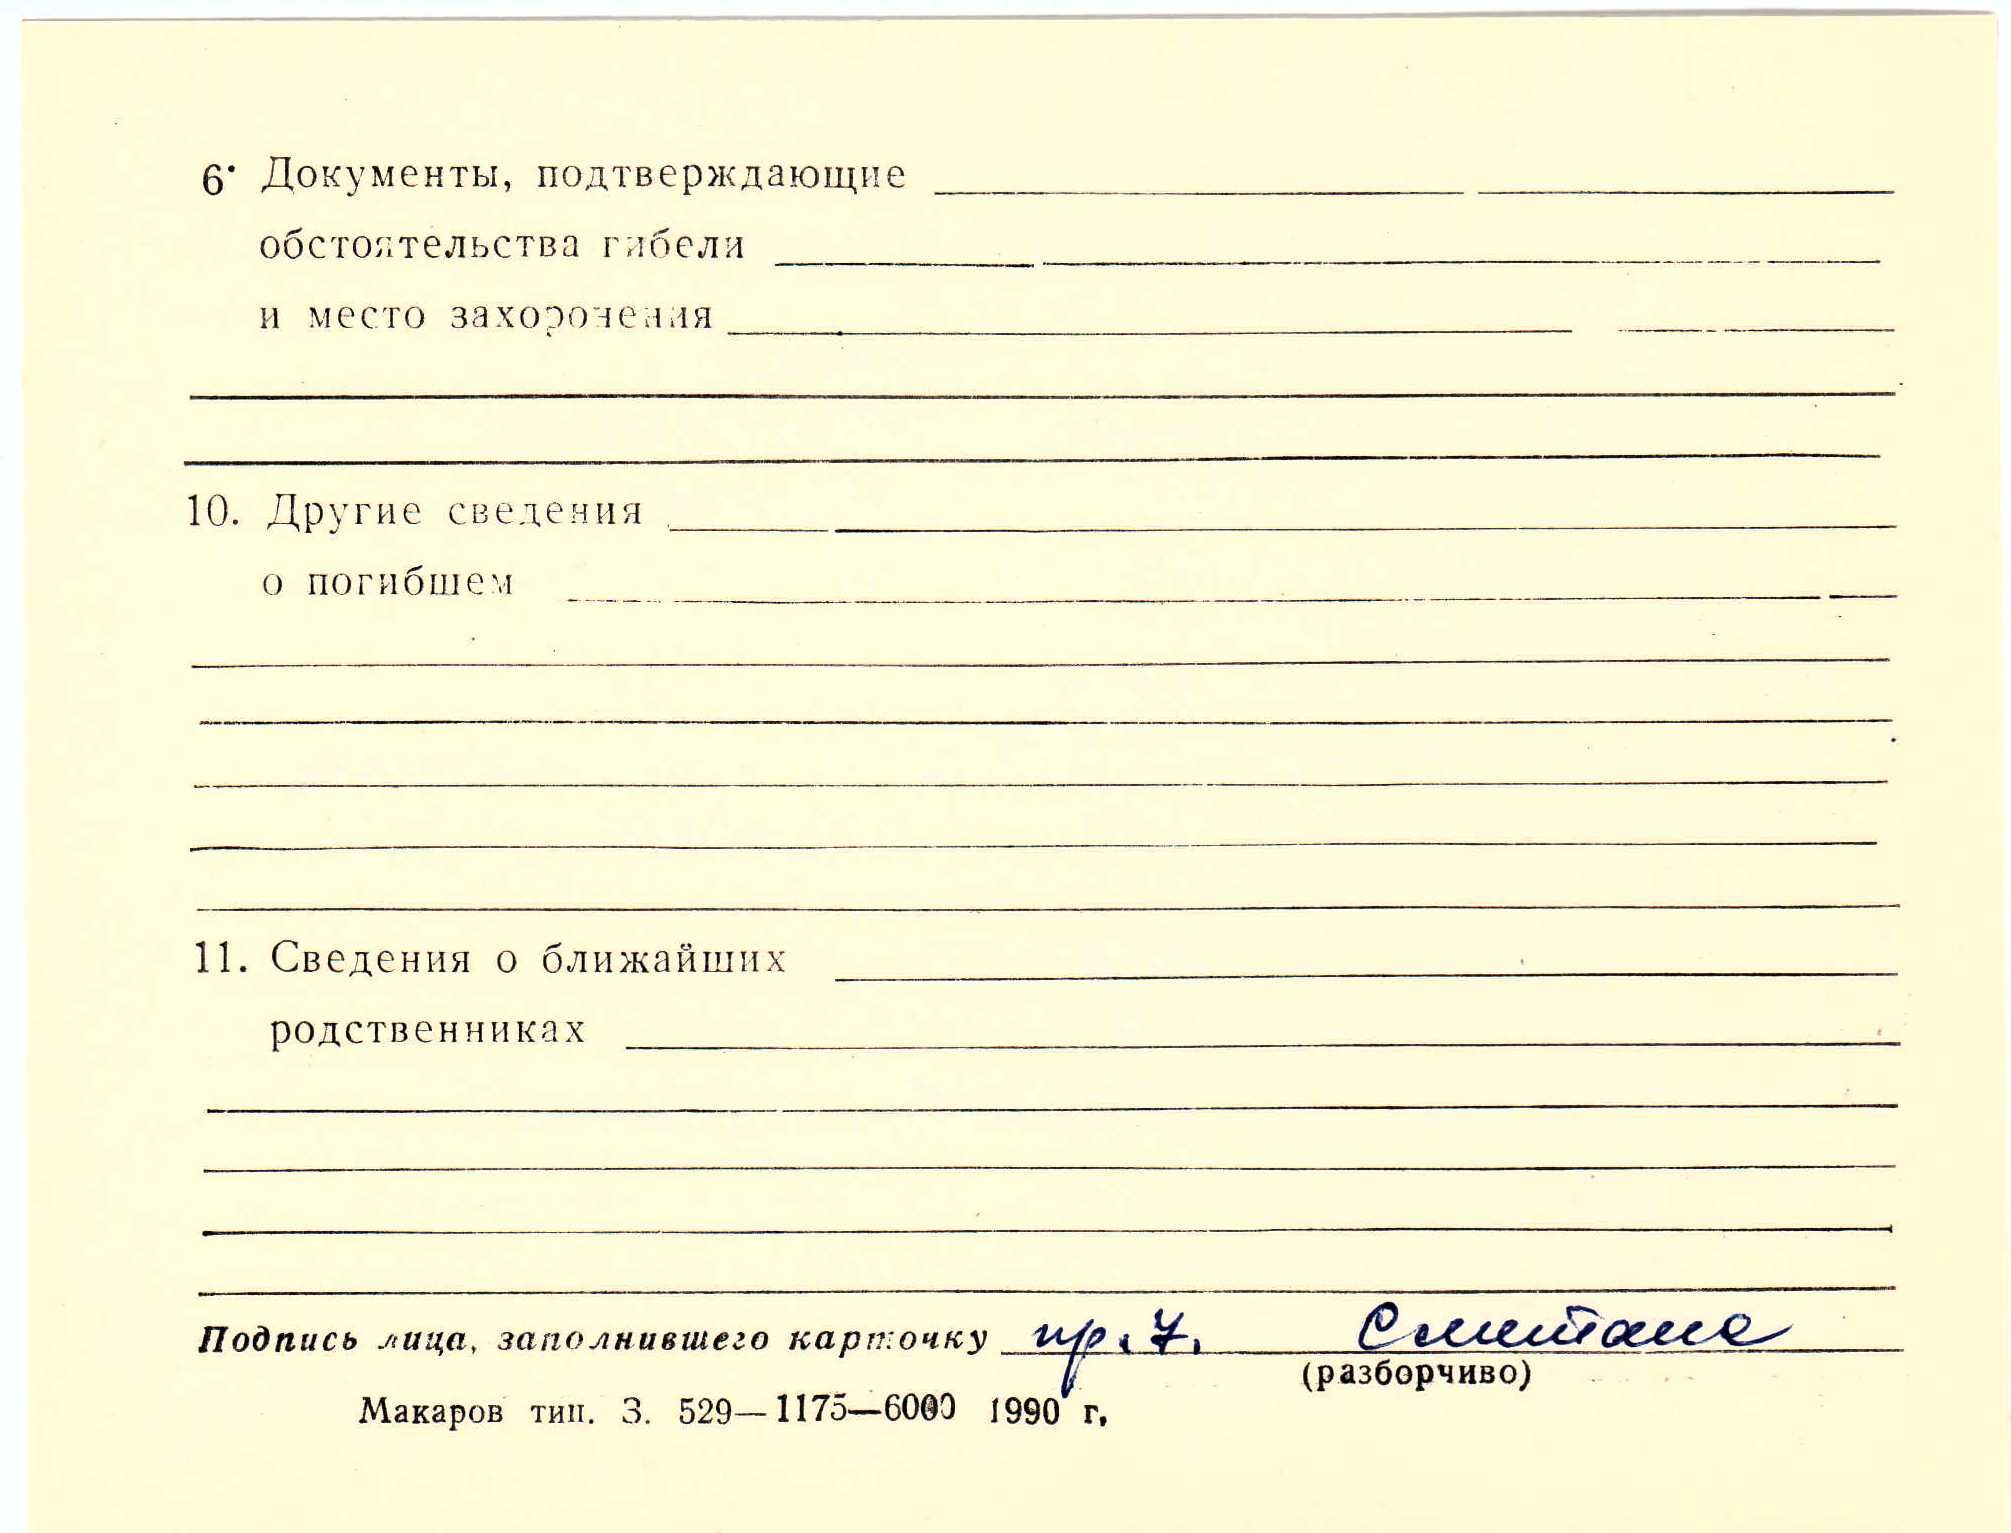 6. Документы, подтверждающие
обстоятельства гибели
и место захоронения
10. Другие сведения
о погибшем
11. Сведения о ближайших
родственниках
Подпись лица, заполнившего карточку пр. 7.
(разборчиво)
Макаров тип. З. 529—1175—6000 1990 г.